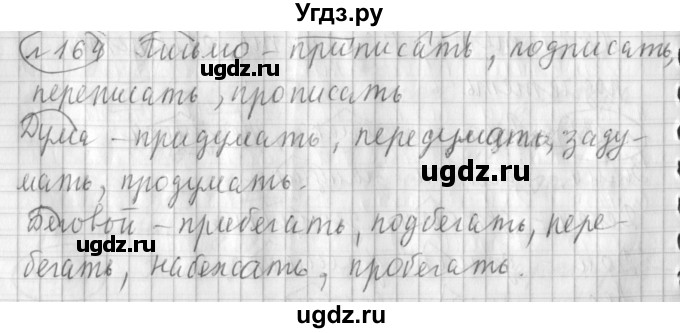 Угдз.ру
№ 164 Письмо – приписать, подписать,
переписать, прописать
Дума – придумать, передумать, заду-
мать, продумать.
Беговой – прибегать, подбегать, пере-
бегать, набежать, пробегать.
uгдз.ru
uгдз.ru
uгдз.ru